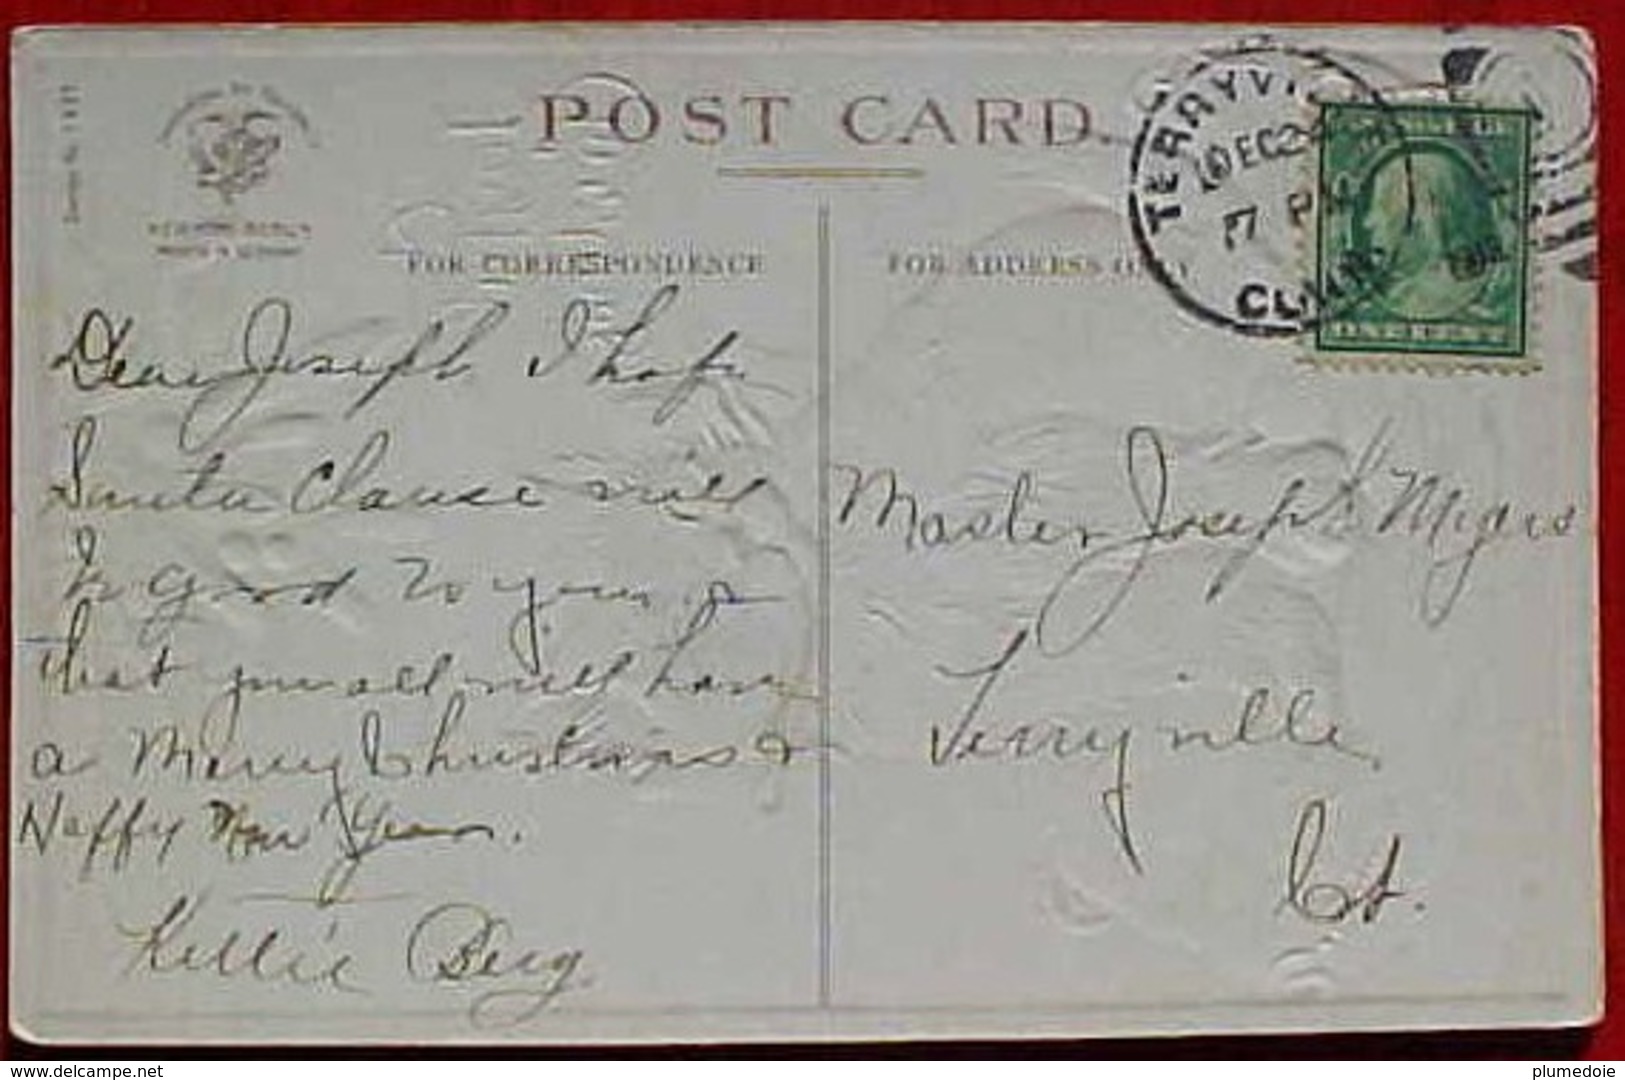 POST CARD.
FOR CORRESPONDENCE
FOR ADDRESS ONLY
TERRYVI
DEC 2
7 P
CONN
Dear Joseph I hope
Santa Clause will
be good to you &
that you all will have
a Merry Christmas &
Happy New Year.
Kellie Berg.
Master Joseph Myers
Terryville
Ct.
www.delcampe.net
plumedoie